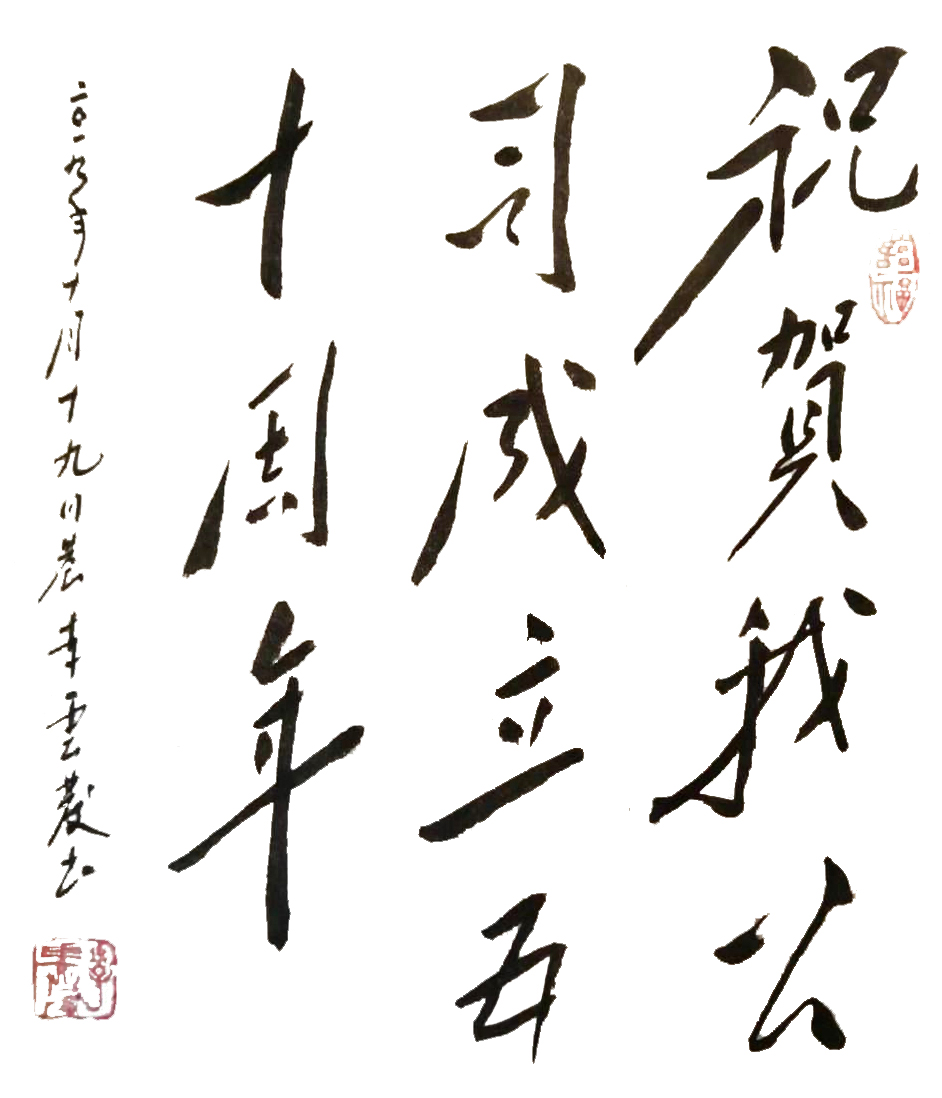 祝賀我公
司成立五
十周年
二〇一九年十月十九日晨李雲书